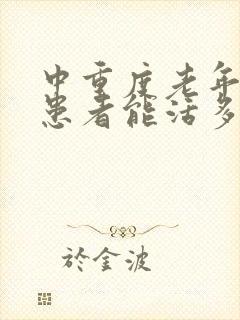 中重度老年
患者能活多
於金波